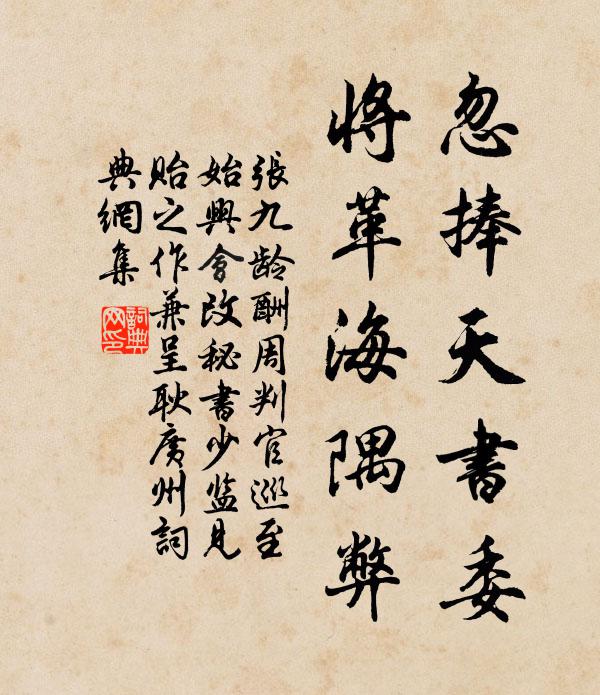 忽捧天書委
將革海隅弊
張九齡酬周判官巡至
始興會改秘書少監見
貽之作兼呈耿廣州詞
典網集
詞典
网印